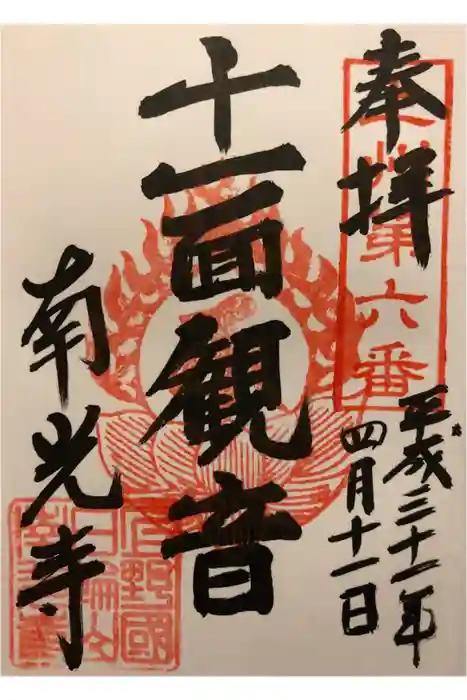 奉拝
第六番
平成三十一年
四月十一日
十一面観音
南光寺